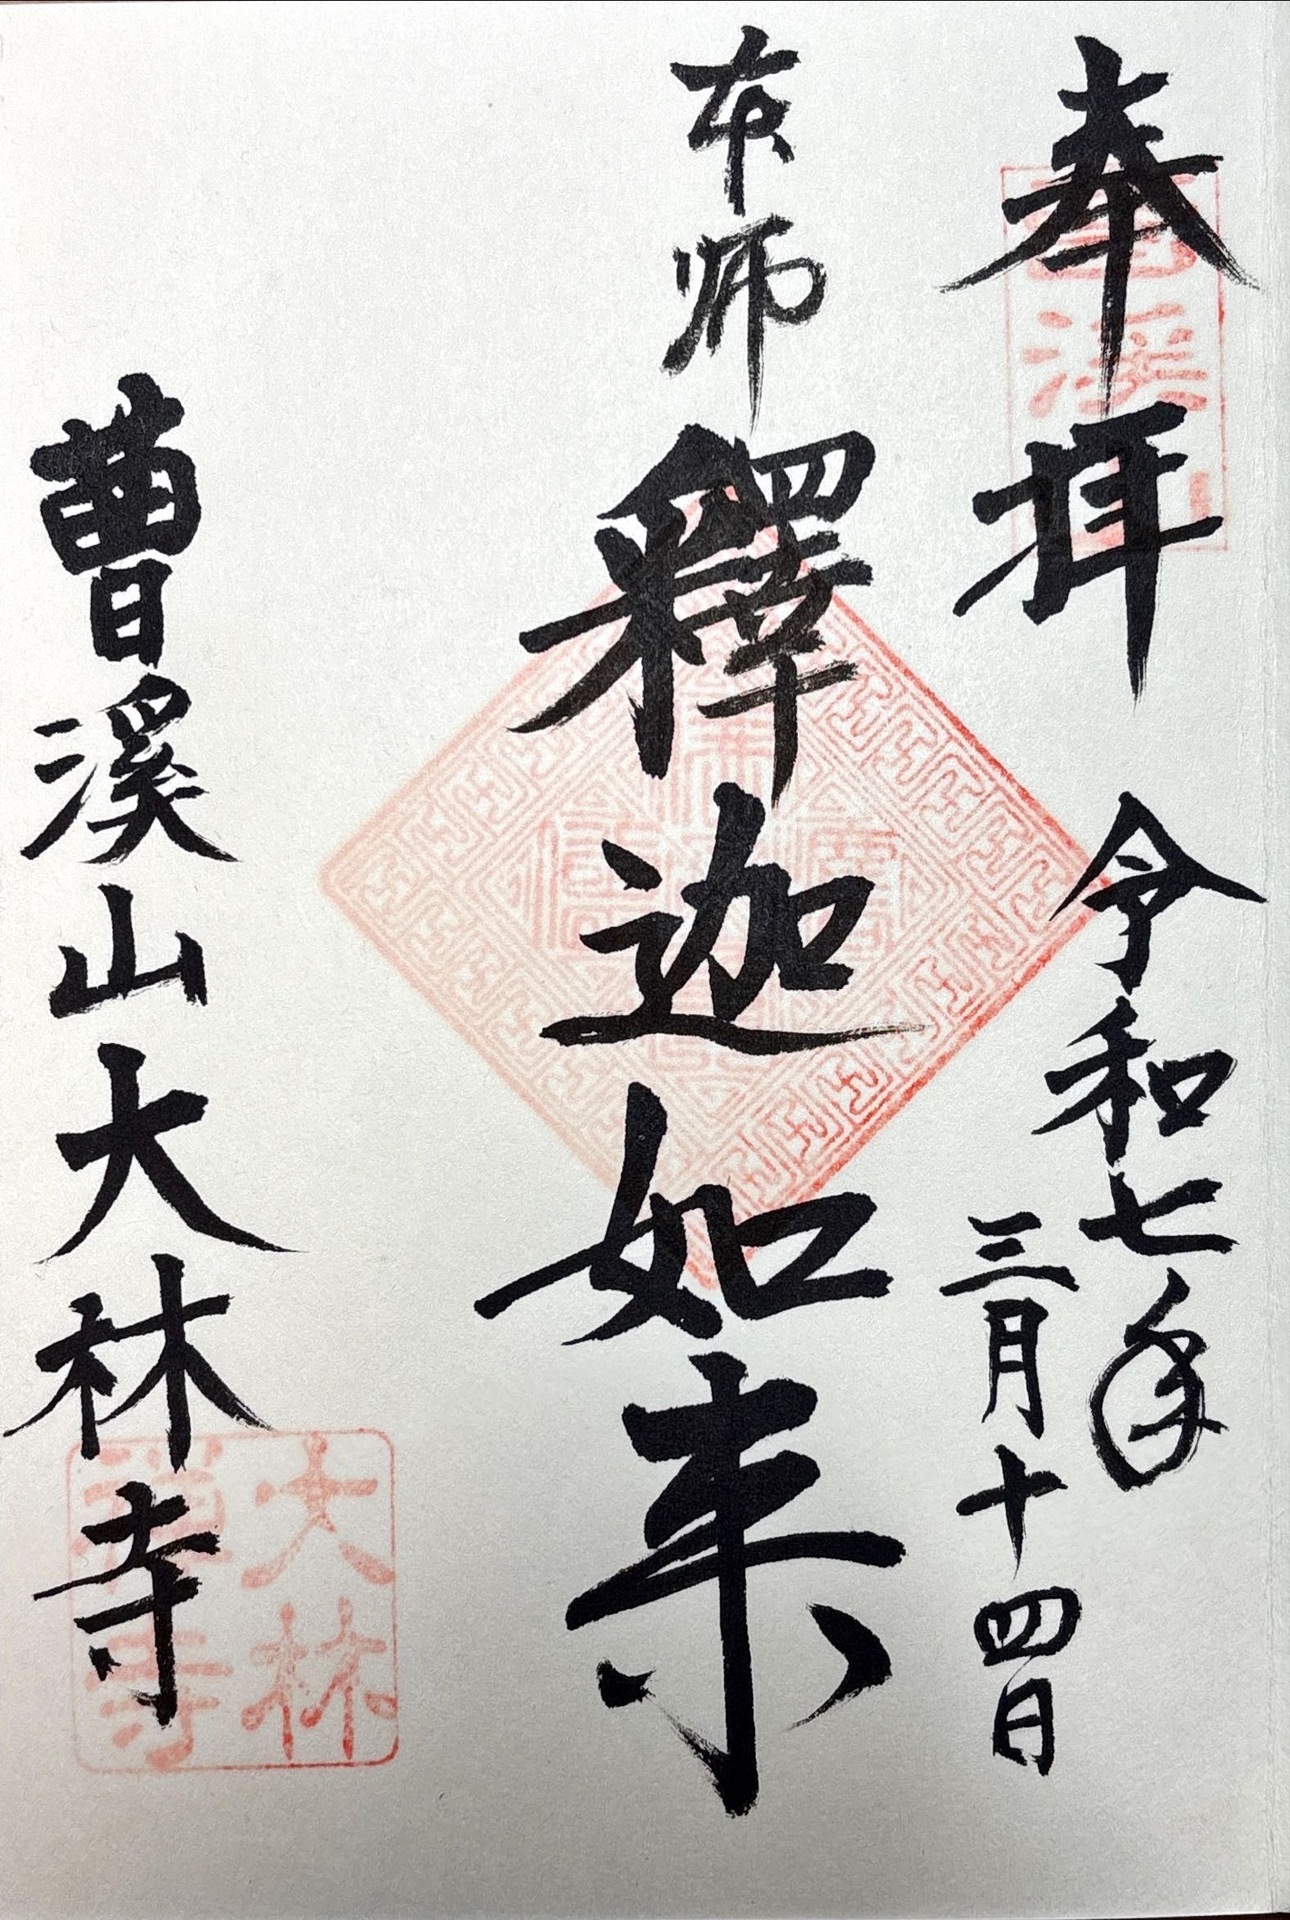 奉拝
令和七年
三月十四日
本师
釋迦如来
曹溪山大林寺
大林
禅寺